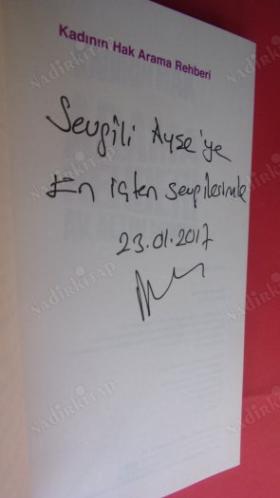 Kadının Hak Arama Rehberi
Sevgili Ayşe'ye
En içten sevgilerimle
23.01.2017
Nadirkitap